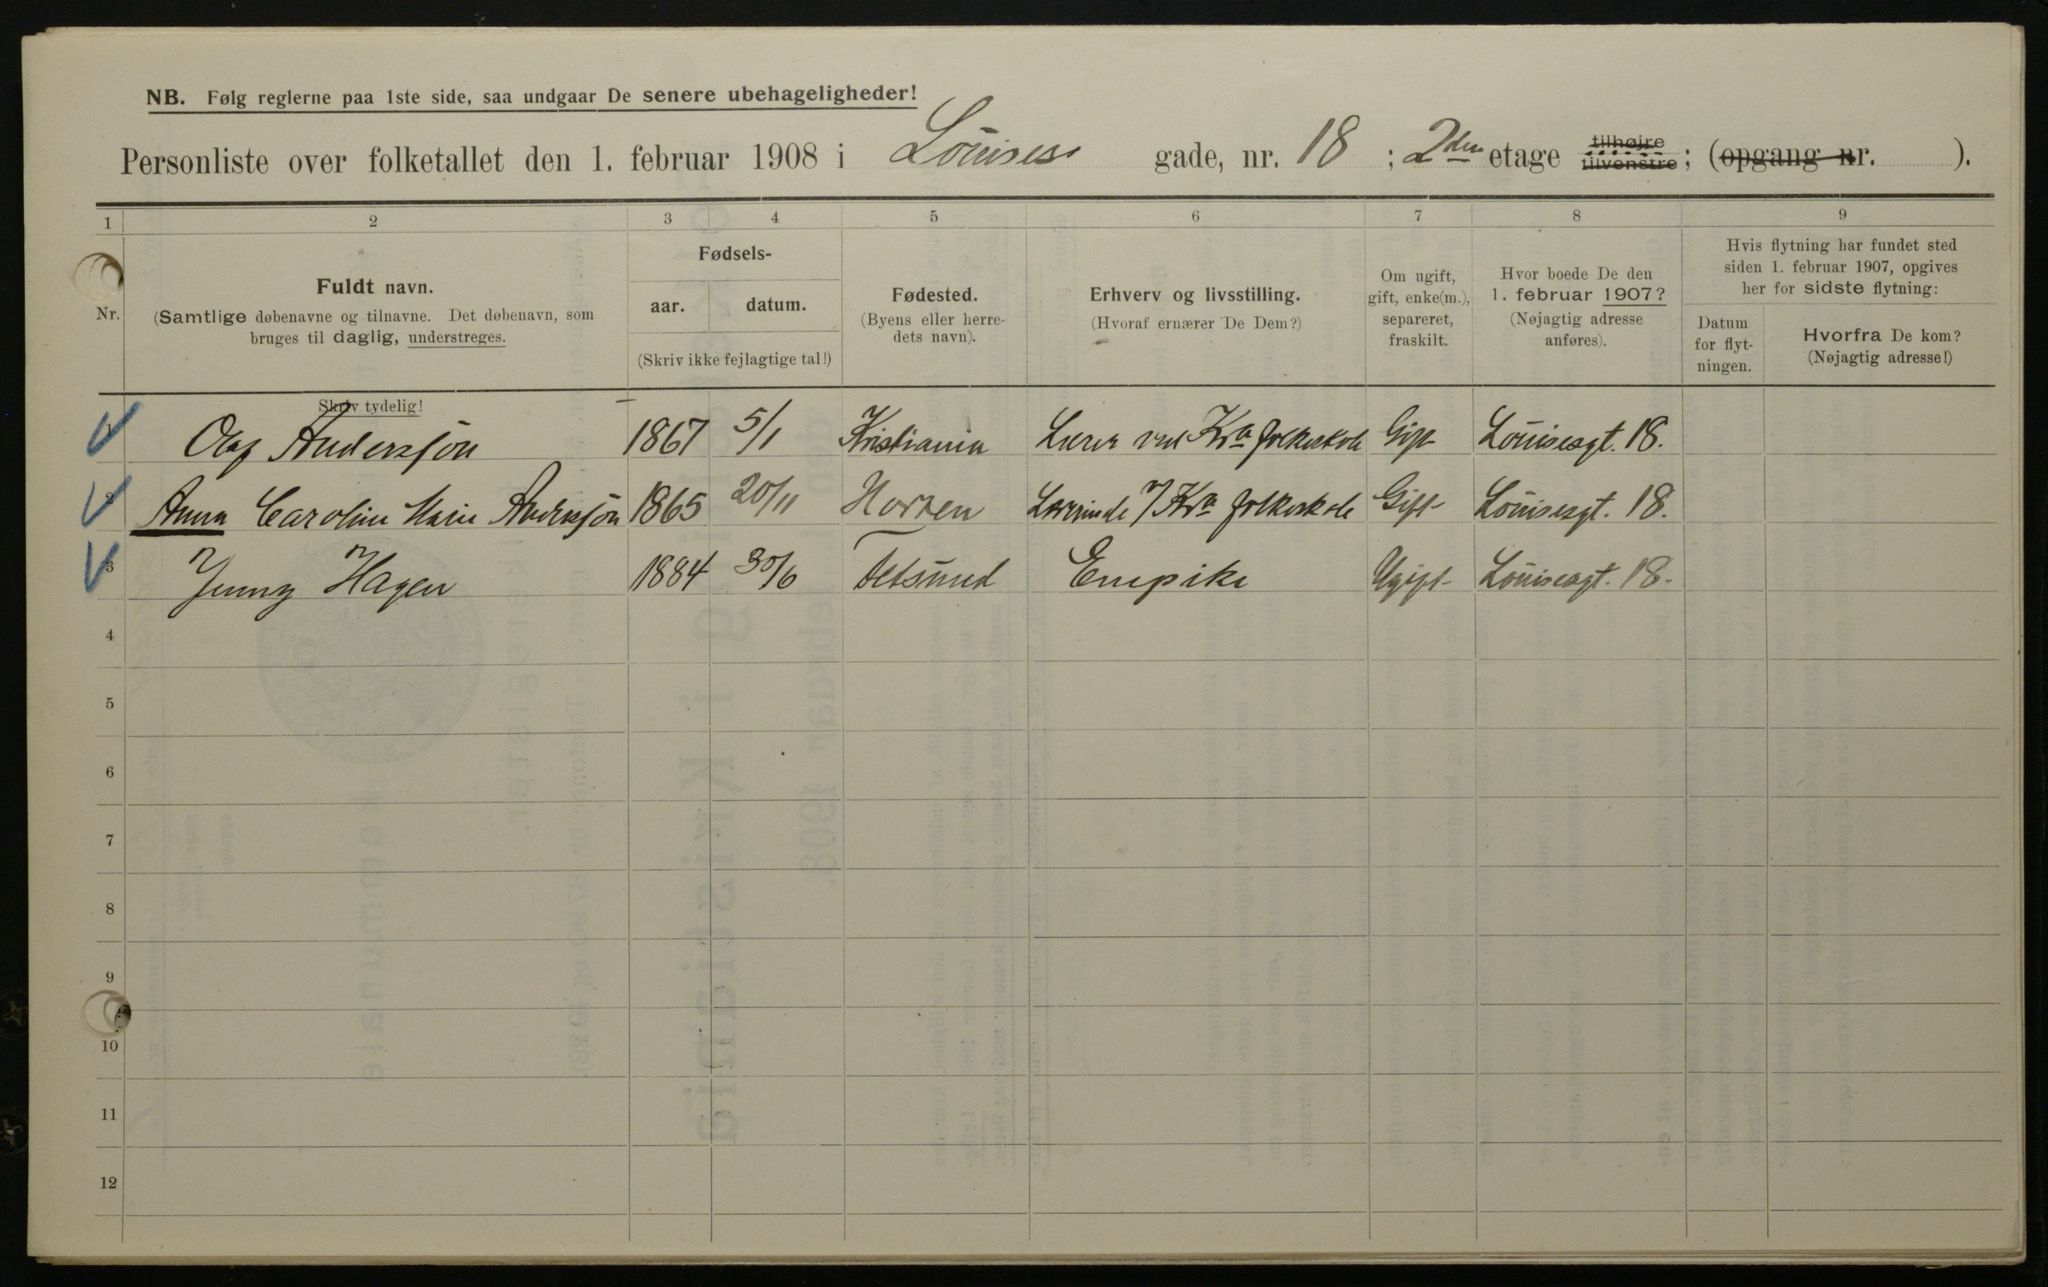 NB. Følg reglerne paa 1ste side, saa undgaar De senere ubehageligheder!
Personliste over folketallet den 1. februar 1908 i Louises gade, nr. 18 ; 2den etage tilhøjre tilvenstre ; (opgang nr. ).
1 2 3 4 5 6 7 8 9
Nr.
Fuldt navn.
(Samtlige døbenavne og tilnavne. Det døbenavn, som
bruges til daglig, understreges.
Fødsels-
aar. datum.
(Skriv ikke fejlagtige tal!)
Fødested.
(Byens eller herre-
dets navn).
Erhverv og livsstilling.
(Hvoraf ernærer De Dem?)
Om ugift,
gift, enke(m.),
separeret,
fraskilt.
Hvor boede De den
1. februar 1907?
(Nøjagtig adresse
anføres).
Hvis flytning har fundet sted
siden 1. februar 1907, opgives
her for sidste flytning:
Datum
for flyt-
ningen.
Hvorfra De kom?
(Nøjagtig adresse!)
Skriv tydelig!
1 Olaf Andersjön 1867 5/1 Kristiania Lærer ved Kra folkeskole Gift Louisesgt. 18.
2 Anna Caroline Marie Andersjön 1865 20/11 Horten Lærerinde v/ Kra folkeskole Gift Louisesgt. 18.
3 Jenny Hagen 1884 30/6 Fetsund Enepike Ugift Louisesgt. 18.
4
5
6
7
8
9
10
11
12